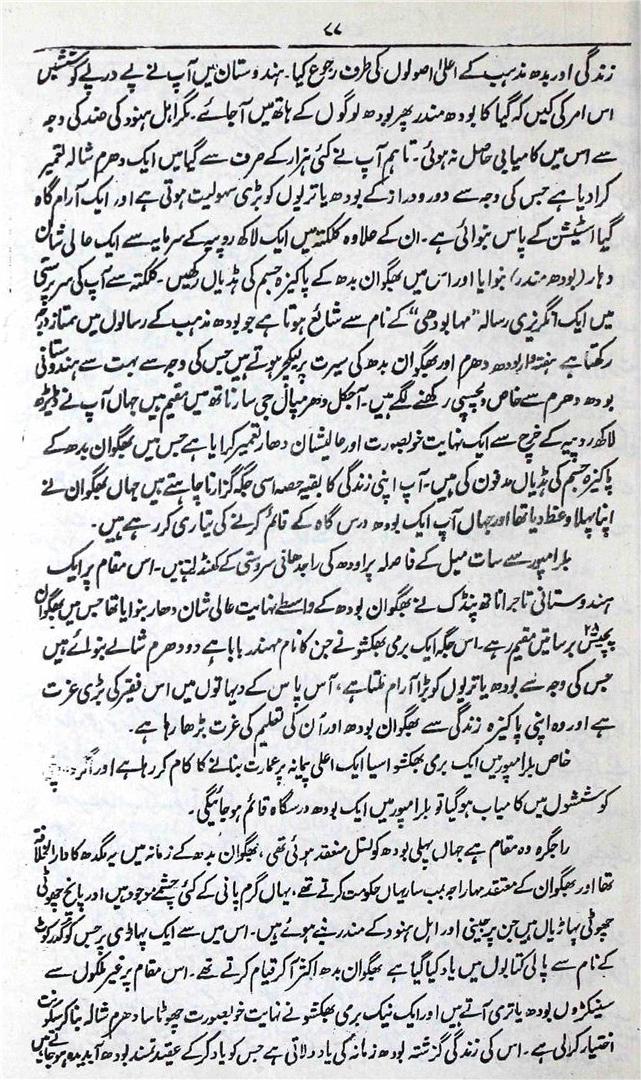 ۷۷
زندگی اور بدھ مذہب کے اعلیٰ اصولوں کی طرف رجوع کیا۔ ہندوستان میں آپ نے پے درپے کوششیں
اس امر کی کیں کہ گیا کا بودھ مندر پھر بودھ لوگوں کے ہاتھ میں آ جائے۔ مگر اہل ہنود کی ضد کی وجہ
سے اس میں کامیابی حاصل نہ ہوئی۔ تاہم آپ نے کئی ہزار کے صرف سے گیا میں ایک دھرم شالہ تعمیر
کرا دیا ہے جس کی وجہ سے دور دراز کے بودھ یاتریوں کو بڑی سہولیت ہوتی ہے اور ایک آرام گاہ
گیا اسٹیشن کے پاس بنوائی ہے۔ ان کے علاوہ کلکتہ میں ایک لاکھ روپیہ کے سرمایہ سے ایک عالی شان
وہار (بودھ مندر) بنوایا اور اس میں بھگوان بدھ کے پاکیزہ جسم کی ہڈیاں رکھیں۔ کلکتہ سے آپ کی سرپرستی
میں ایک انگریزی رسالہ "مہابودھی" کے نام سے شائع ہوتا ہے جو بودھ مذہب کے رسالوں میں ممتاز درجہ
رکھتا ہے ہفتہ وار بودھ دھرم اور بھگوان بدھ کی سیرت پر لیکچر ہوتے ہیں جس کی وجہ سے بہت سے ہندوستانی
بودھ دھرم سے خاص دلچسپی رکھنے لگے ہیں۔ آجکل دھرمپال جی سارناتھ میں مقیم ہیں جہاں آپ نے ڈیڑھ
لاکھ روپیہ کے خرچ سے ایک نہایت خوبصورت اور عالیشان دھار تعمیر کرایا ہے جس میں بھگوان بدھ کے
پاکیزہ جسم کی ہڈیاں مدفون کی ہیں۔ آپ اپنی زندگی کا بقیہ حصہ اسی جگہ گزارنا چاہتے ہیں جہاں بھگوان نے
اپنا پہلا وعظ دیا تھا اور جہاں آپ ایک بودھ درس گاہ کے قائم کرنے کی تیاری کر رہے ہیں۔
بلرامپور سے سات میل کے فاصلہ پر اودھ کی راجدھانی سروستی کے کھنڈلت ہیں۔ اس مقام پر ایک
ہندوستانی تاجر اناتھ پنڈک نے بھگوان بودھ کے واسطے نہایت عالی شان دھار بنوایا تھا جس میں بھگوان
پچیس ۲۵ برساتیں مقیم رہے۔ اس جگہ ایک برمی بھکشو نے جن کا نام مہندر بابا ہے دو دھرم شالے بنوائے ہیں
جس کی وجہ سے بودھ یاتریوں کو بڑا آرام ملتا ہے، آس پاس کے دیہاتوں میں اس فقیر کی بڑی عزت
ہے اور وہ اپنی پاکیزہ زندگی سے بھگوان بودھ اور اُن کی تعلیم کی عزت بڑھا رہا ہے۔
خاص بلرامپور میں ایک برمی بھکشو اسیا ایک اعلیٰ پیمانہ پر عمارت بنانے کا کام کر رہا ہے اور اگر
کوششوں میں کامیاب ہو گیا تو بلرامپور میں ایک بودھ درسگاہ قائم ہو جائیگی۔
راجگرہ وہ مقام ہے جہاں پہلی بودھ کونسل منعقد ہوئی تھی، بھگوان بدھ کے زمانہ میں یہ مگدھ کا دارالخلافہ
تھا اور بھگوان کے معتقد مہاراجہ بمب سار یہاں حکومت کرتے تھے، یہاں گرم پانی کے کئی چشمے موجود ہیں اور پانچ چھوٹی
چھوٹی پہاڑیاں ہیں جن پر جینی اور اہل ہنود کے مندر بنے ہوئے ہیں۔ اس میں سے ایک پہاڑی پر جس کو گدھرکوٹ
کے نام سے پالی کتابوں میں یاد کیا گیا ہے بھگوان بدھ اکثر آکر قیام کرتے تھے۔ اس مقام پر غیر ملکوں سے
سینکڑوں بودھ یاتری آتے ہیں اور ایک نیک برمی بھکشو نے نہایت خوبصورت چھوٹا سا دھرم شالہ بنا کر سکونت
اختیار کر لی ہے۔ اس کی زندگی گزشتہ بودھ زمانہ کی یاد دلاتی ہے جس کو یاد کر کے عقیدتمند بودھ آبدیدہ ہو جاتے ہیں